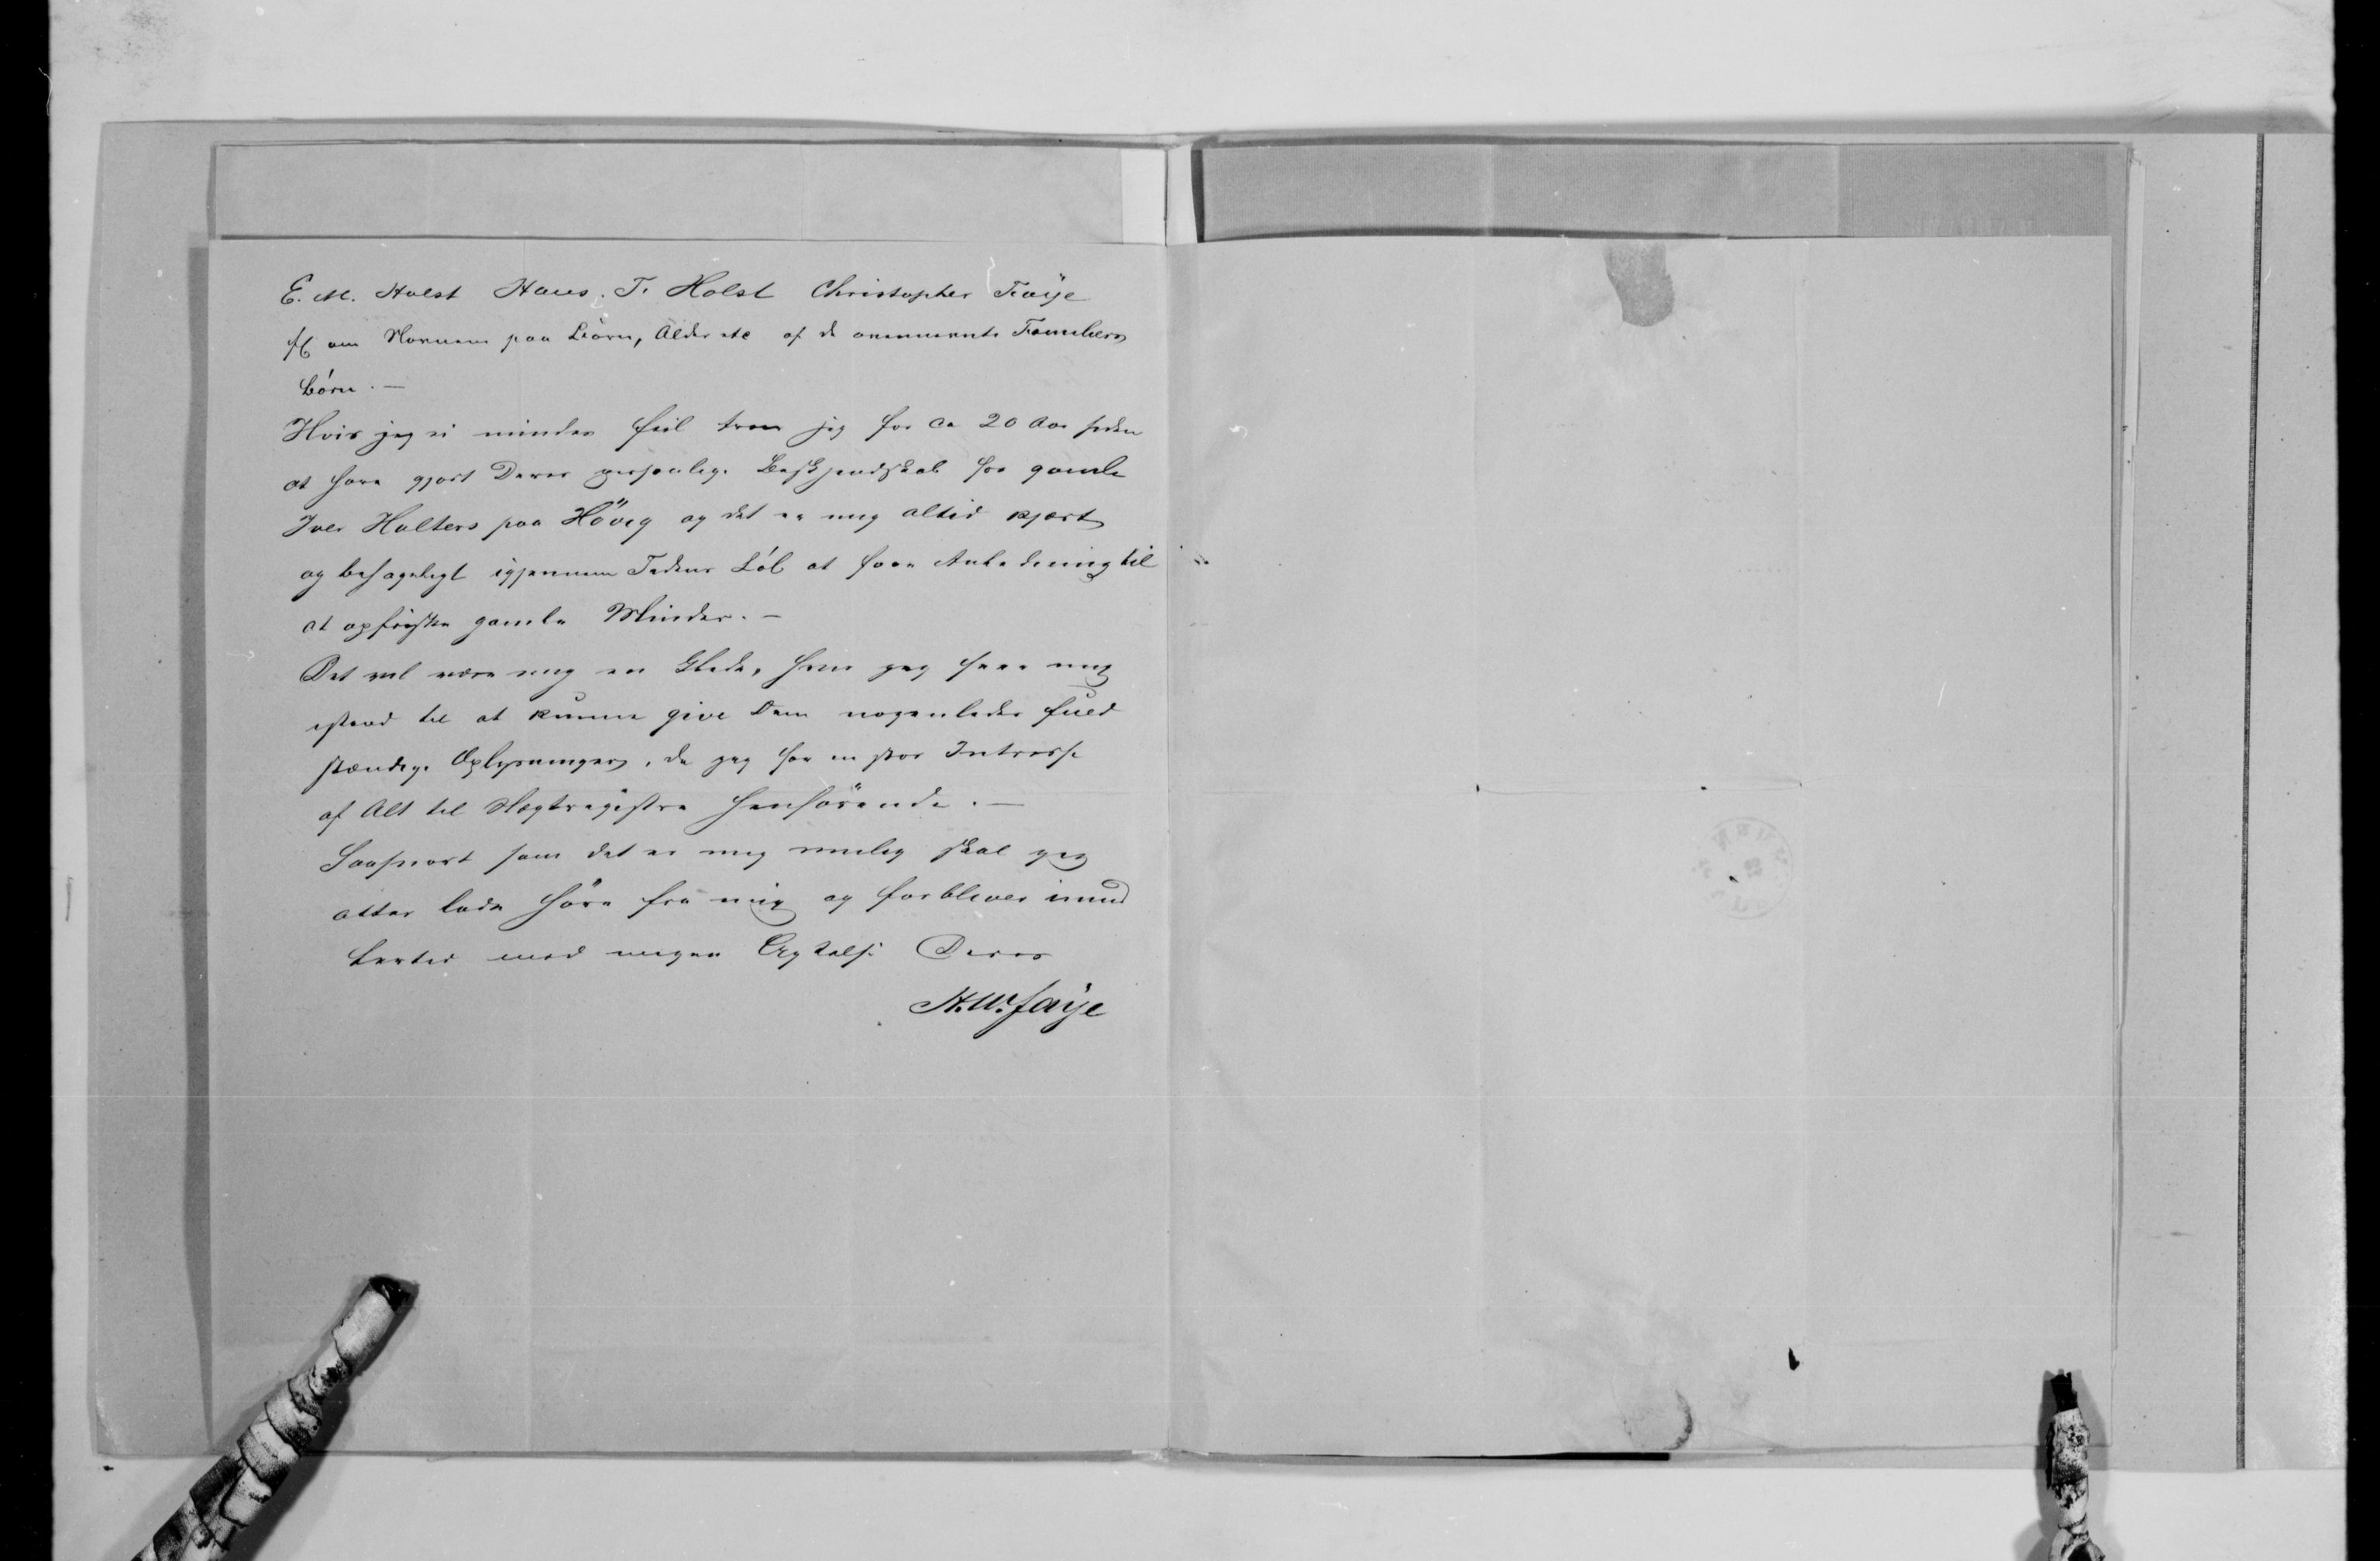 E. M. Holst Hans. T. Holst Christopher Faÿe
om Navnene paa Børn, Alder etc af de ovennevnte Familiers
Børn. —
Hvis jeg ei mindes feil troer jeg for ca 20 Aar siden
at have gjort Deres personlige Bekjendtskab hos gamle
Iver Holters paa Hövig og det er mig altid kjært
og behageligt igjennem Tidens Løb at faae Anledning til
at opfriske gamle Minder. —
Det vil være mig en Glæde, hvis jeg seer mig
istand til at kunne give Dem nogenledes fuld
stændige Oplysninger, da jeg har en stor Intresse
af Alt til Slægtregistre henhörende. —
Saasnart som det er mig mulig skal jeg
atter lade höre fra mig og forbliver imid
lertid med megen Agtelse Deres
H. W. Faÿe